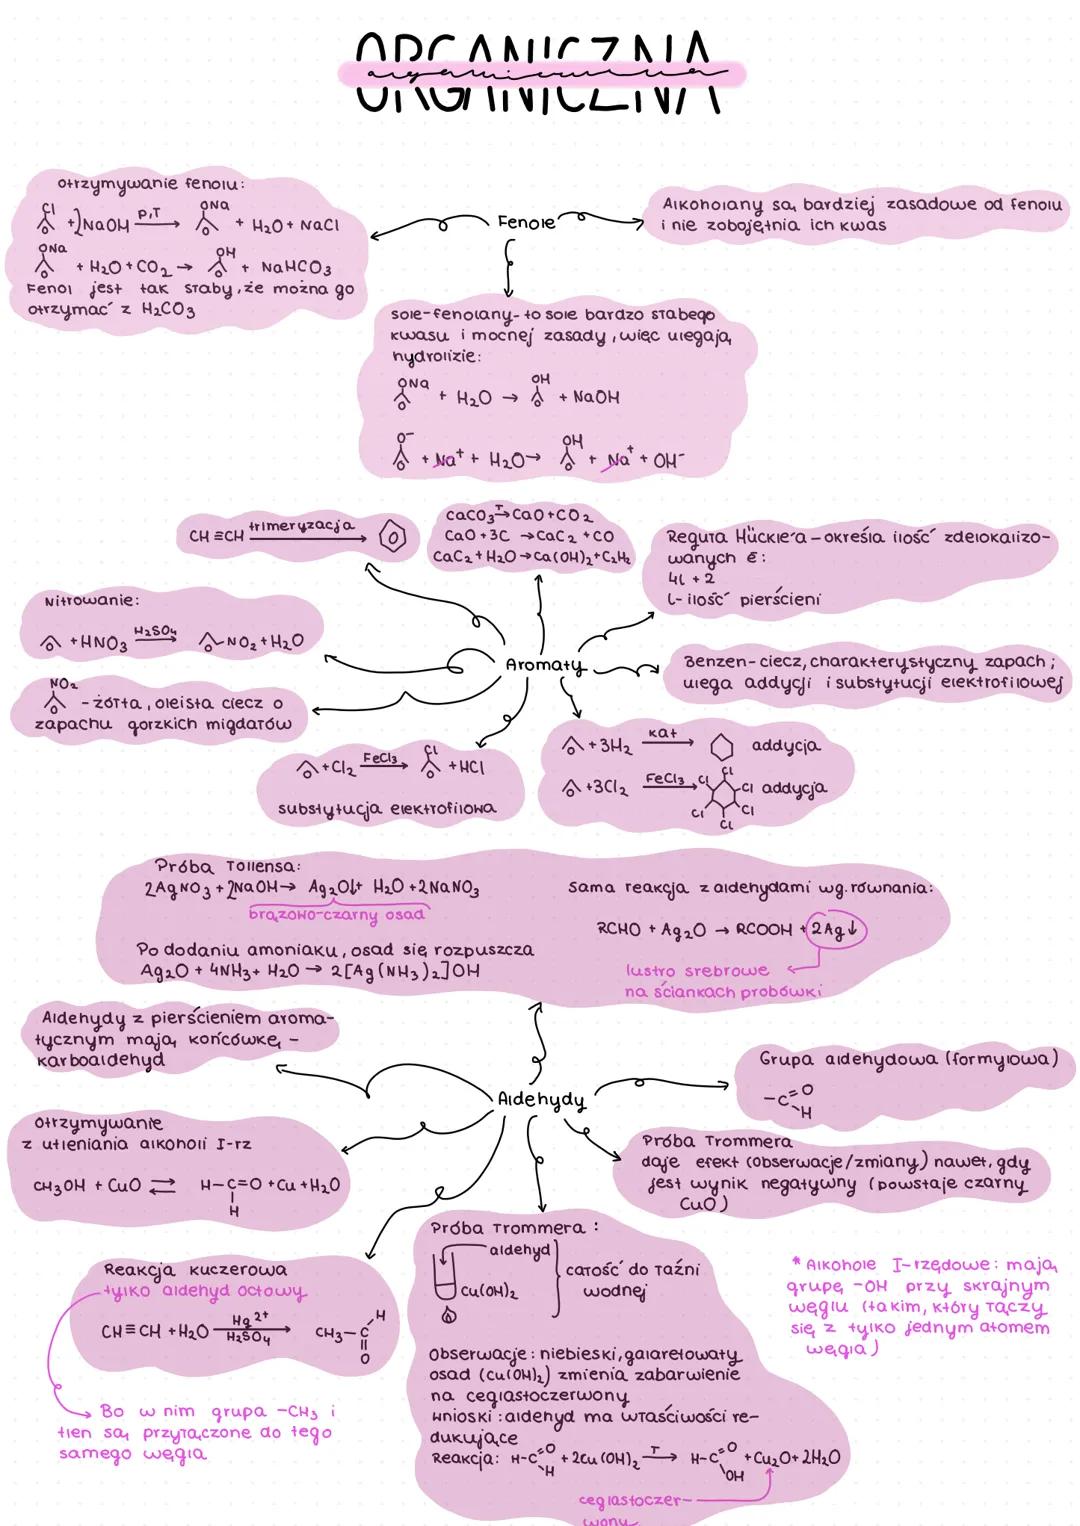 ORGANICZNA
organiczna
otrzymywanie fenolu:
Cl + 2NaOH p,T → ONa + H₂O + NaCl
ONa + H₂O + CO₂ → OH + NaHCO₃
Fenol jest tak słaby, że można go
otrzymać z H₂CO₃
Fenole
Alkoholany są bardziej zasadowe od fenolu
i nie zobojętnia ich kwas
sole-fenolany- to sole bardzo słabego
kwasu i mocnej zasady, więc ulegają
hydrolizie:
ONa + H₂O → OH + NaOH
O⁻ + Na⁺ + H₂O → OH + Na⁺ + OH⁻
CH≡CH trimeryzacja →
CaCO₃ T→ CaO + CO₂
CaO + 3C → CaC₂ + CO
CaC₂ + H₂O → Ca(OH)₂ + C₂H₂
Reguła Hückle'a – określa ilość zdelokalizo-
wanych ē:
4l + 2
l- ilość pierścieni
Nitrowanie:
+ HNO₃ H₂SO₄ → NO₂ + H₂O
Aromaty
Benzen- ciecz, charakterystyczny zapach;
ulega addycji i substytucji elektrofilowej
NO₂ - żółta, oleista ciecz o
zapachu gorzkich migdałów
+ Cl₂ FeCl₃ → Cl + HCl
substytucja elektrofilowa
+ 3H₂ kat → addycja
+ 3Cl₂ FeCl₃ → Cl Cl Cl Cl Cl Cl addycja
Próba Tollensa:
2AgNO₃ + 2NaOH → Ag₂O↓ + H₂O + 2NaNO₃
brązowo-czarny osad
Po dodaniu amoniaku, osad się rozpuszcza
Ag₂O + 4NH₃ + H₂O → 2[Ag(NH₃)₂]OH
Sama reakcja z aldehydami wg. równania:
RCHO + Ag₂O → RCOOH + 2Ag↓
lustro srebrowe
na ściankach probówki
Aldehydy z pierścieniem aroma-
tycznym mają końcówkę -
karboaldehyd
Aldehydy
Grupa aldehydowa (formylowa)
-C=O
H
otrzymywanie
z utleniania alkoholi I-rz
CH₃OH + CuO ⇄ H-C=O + Cu + H₂O
H
Próba Trommera
daje efekt (obserwacje/zmiany) nawet, gdy
jest wynik negatywny (powstaje czarny
CuO)
Reakcja kuczerowa
tylko aldehyd octowy
CH≡CH + H₂O Hg²⁺ H₂SO₄ → CH₃-C H O
Bo w nim grupa -CH₃ i
tlen są przyłączone do tego
samego węgla
Próba Trommera :
aldehyd
Cu(OH)₂
całość do łaźni
wodnej
obserwacje: niebieski, galaretowaty
osad (Cu(OH)₂) zmienia zabarwienie
na ceglastoczerwony
wnioski: aldehyd ma właściwości re-
dukujące
Reakcja: H-C=O H + 2Cu(OH)₂ T → H-C=O OH + Cu₂O + 2H₂O
ceglastoczer-
wony
* Alkohole I-rzędowe: mają
grupę -OH przy skrajnym
węglu (takim, który łączy
się z tylko jednym atomem
węgla)